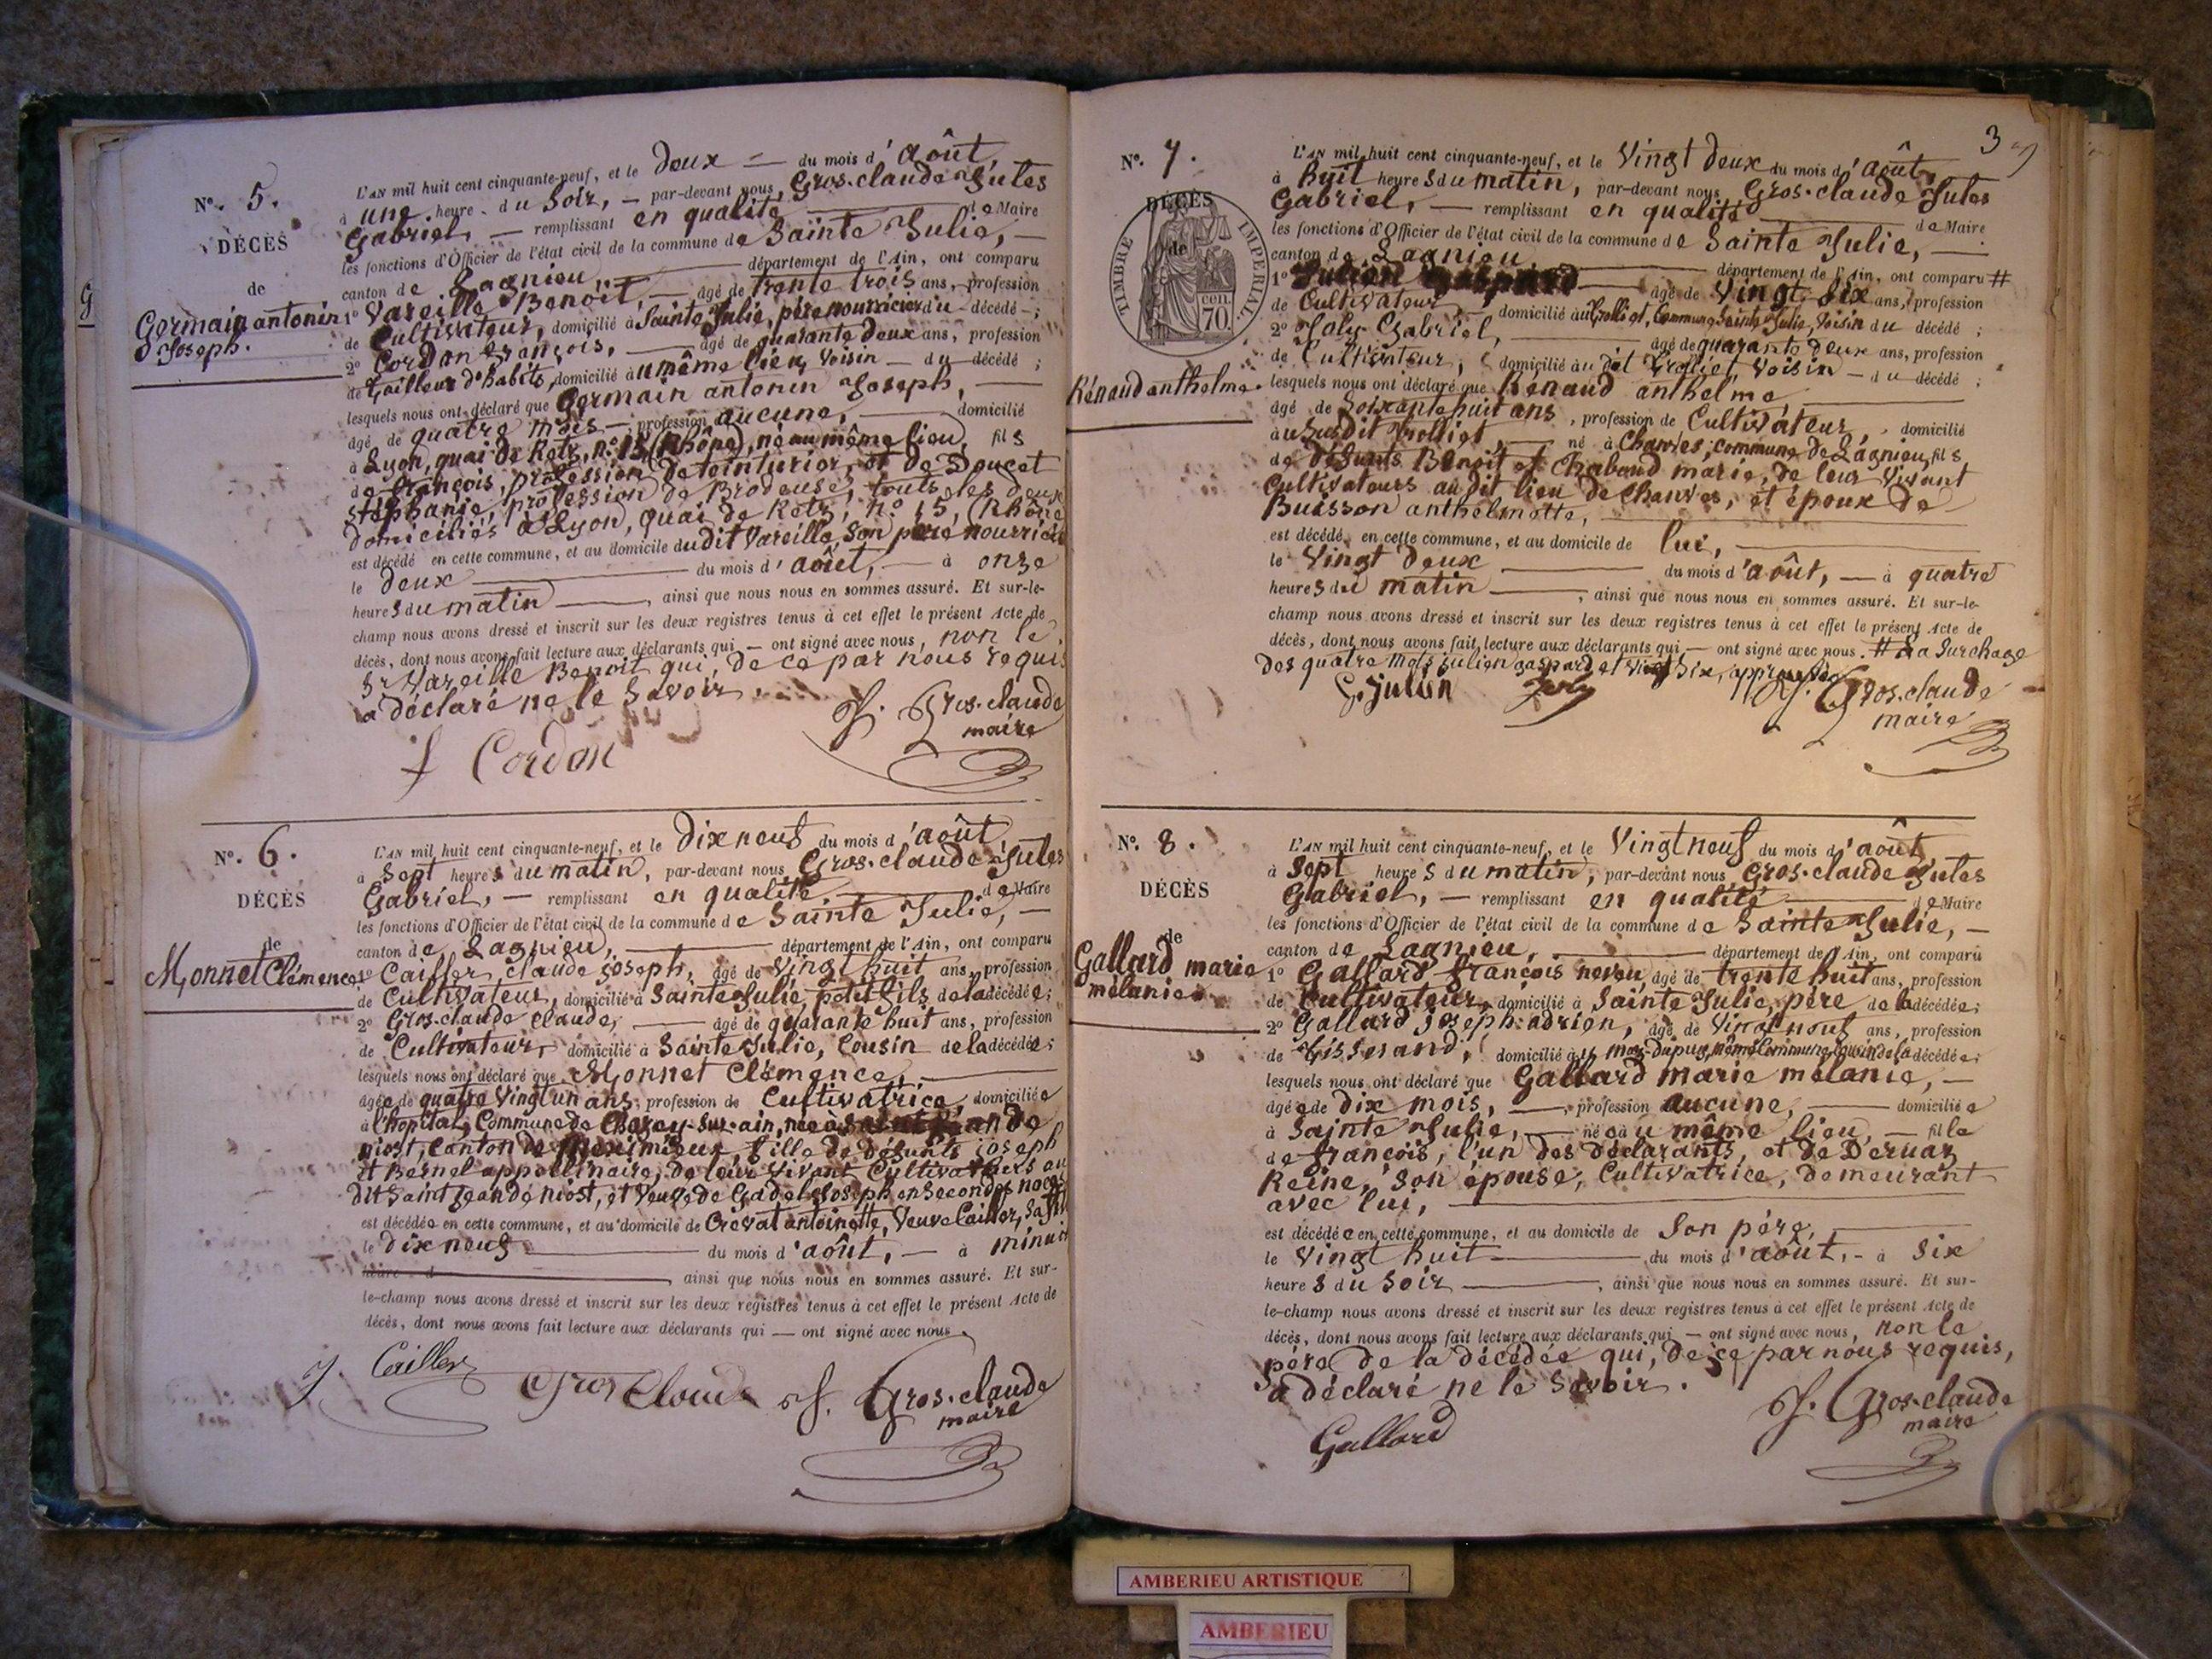 G
N°. 5.
DÉCÈS
de
Germain antonin
Joseph.
L'AN mil huit cent cinquante-neuf, et le deux du mois d'août,
à une heure du soir, par-devant nous, Gros-claude Jules
Gabriel, remplissant en qualité de Maire
les fonctions d'Officier de l'état civil de la commune de Sainte Julie,
canton de Lagnieu, département de l'Ain, ont comparu
1° Vareille Benoît, âgé de trente trois ans, profession
de Cultivateur, domicilié à Sainte Julie, père nourricier du décédé;
2° Cordon françois, âgé de quarante deux ans, profession
de tailleur d'habits, domicilié au même lieu, voisin du décédé;
lesquels nous ont déclaré que Germain antonin Joseph,
âgé de quatre mois, profession aucune, domicilié
à Lyon, quai de Retz, n° 15 (Rhône), né au même lieu, fils
de françois, profession de teinturier, et de Doucet
stéphanie, profession de Brodeuse, touts les deux
domiciliés à Lyon, quai de Retz, n° 15, (Rhône
est décédé en cette commune, et au domicile dudit Vareille, son père nourricier
le deux du mois d'août, à onze
heures du matin, ainsi que nous nous en sommes assuré. Et sur-le-
champ nous avons dressé et inscrit sur les deux registres tenus à cet effet le présent Acte de
décès, dont nous avons fait lecture aux déclarants qui ont signé avec nous, non le
Sr Vareille Benoît qui, de ce par nous requis
a déclaré ne le savoir.
J. Gros-claude
maire
f Cordon
N°. 6.
DÉCÈS
de
Monnet Clémence
L'AN mil huit cent cinquante-neuf, et le Dix neuf du mois d'août
à sept heures du matin, par-devant nous, Gros-claude Jules
Gabriel, remplissant en qualité de Maire
les fonctions d'Officier de l'état civil de la commune de Sainte Julie,
canton de Lagnieu, département de l'Ain, ont comparu
1° Cailler claude joseph, âgé de vingt huit ans, profession
de Cultivateur, domicilié à Sainte Julie, petit fils de la décédée;
2° Gros-claude claude, âgé de quarante huit ans, profession
de Cultivateur, domicilié à Sainte Julie, Cousin de la décédée;
lesquels nous ont déclaré que Monnet Clémence,
âgée de quatre vingt un ans, profession de Cultivatrice, domiciliée
à l'hopital, Commune de Chazey-sur-ain, née à saint jean de
niost, Canton de Meximieux, fille de défunts joseph
et Bernel appollinaire, de leur vivant Cultivateurs au
dit saint jean de niost, et veuve de Gadel joseph en secondes noces
est décédée en cette commune, et au domicile de Crevat antoinette, veuve Cailler, sa fille
le dix neuf du mois d'août, à minuit
heure d, ainsi que nous nous en sommes assuré. Et sur-
le-champ nous avons dressé et inscrit sur les deux registres tenus à cet effet le présent Acte de
décès, dont nous avons fait lecture aux déclarants qui ont signé avec nous.
J. Cailler Gros Claude J. Gros-claude
maire
3
N°. 7.
DÉCÈS
de
TIMBRE IMPÉRIAL.
70. cen.
Rénaud anthelme
L'AN mil huit cent cinquante-neuf, et le vingt deux du mois d'août,
à huit heures du matin, par-devant nous Gros-claude Jules
Gabriel, remplissant en qualité de Maire
les fonctions d'Officier de l'état civil de la commune de Sainte Julie,
canton de Lagnieu, département de l'Ain, ont comparu #
1° Julien gaspard âgé de vingt six ans, profession
de Cultivateur, domicilié au Trolliet, Commune Sainte Julie, voisin du décédé;
2° Joly Gabriel, âgé de quarante deux ans, profession
de Cultivateur, domicilié au dit Trolliet, voisin du décédé;
lesquels nous ont déclaré que Rénaud anthelme
âgé de soixante huit ans, profession de Cultivateur, domicilié
au susdit Trolliet, né à Chanves, commune de Lagnieu, fils
de défunts Benoît et Chaboud marie, de leur vivant
Cultivateurs au dit lieu de Chanves, et époux de
Buisson anthelmette,
est décédé en cette commune, et au domicile de lui,
le vingt deux du mois d'août, à quatre
heures du matin, ainsi que nous nous en sommes assuré. Et sur-le-
champ nous avons dressé et inscrit sur les deux registres tenus à cet effet le présent Acte de
décès, dont nous avons fait lecture aux déclarants qui ont signé avec nous. # La surchage
des quatre mots julien gaspard et vingt six, approuvée
G. julien Joly J. Gros-claude
maire
N°. 8.
DÉCÈS
de
Gallard marie
mélanie
L'AN mil huit cent cinquante-neuf, et le Vingt neuf du mois d'août
à sept heures du matin, par-devant nous Gros-claude Jules
Gabriel, remplissant en qualité de Maire
les fonctions d'Officier de l'état civil de la commune de Sainte Julie,
canton de Lagnieu, département de l'Ain, ont comparu
1° Gallard françois neveu, âgé de trente huit ans, profession
de Cultivateur, domicilié à Sainte Julie, père de la décédée;
2° Gallard joseph-adrien, âgé de vingt neuf ans, profession
de Tisserand, domicilié au mas-dupuy, même Commune, cousin de la décédée;
lesquels nous ont déclaré que Gallard marie mélanie,
âgée de dix mois, profession aucune, domiciliée
à Sainte Julie, née au même lieu, fille
de françois, l'un des déclarants, et de Deruaz
Reine, son épouse, Cultivatrice, demeurant
avec lui,
est décédée en cette commune, et au domicile de son père,
le vingt huit du mois d'août, à six
heures du soir, ainsi que nous nous en sommes assuré. Et sur-
le-champ nous avons dressé et inscrit sur les deux registres tenus à cet effet le présent Acte de
décès, dont nous avons fait lecture aux déclarants qui ont signé avec nous, non le
père de la décédée qui, de ce par nous requis,
a déclaré ne le savoir.
Gallard J. Gros-claude
maire
AMBERIEU ARTISTIQUE
AMBERIEU